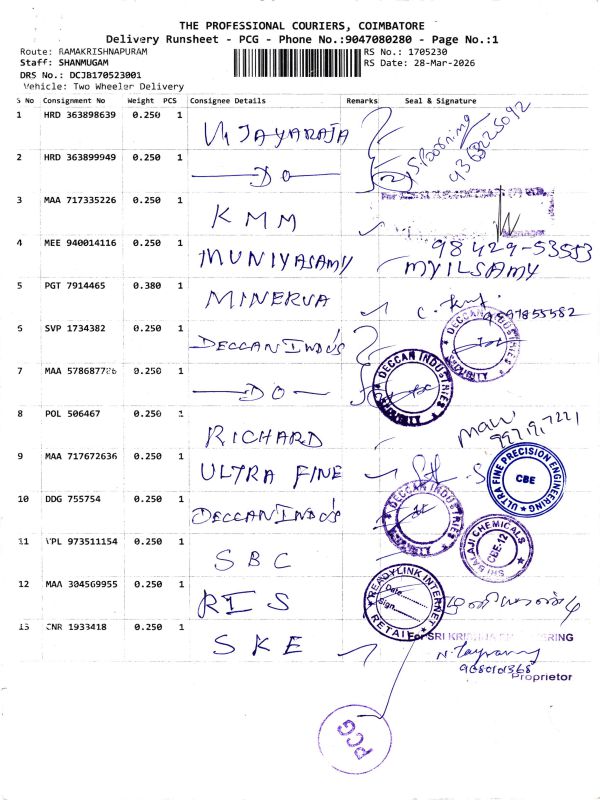 THE PROFESSIONAL COURIERS, COIMBATORE
Delivery Runsheet - PCG - Phone No.:9047080280 - Page No.:1
Route: RAMAKRISHNAPURAM
RS No.: 1705230
Staff: SHANMUGAM
RS Date: 28-Mar-2026
DRS No.: DCJB170523001
Vehicle: Two Wheeler Delivery
S No Consignment No Weight PCS Consignee Details Remarks Seal & Signature
1 HRD 363898639 0.250 1 VIJAYARAJA
2 HRD 363899949 0.250 1 DO (2)
3 MAA 717335226 0.250 1 KMM
98429-53553
4 MEE 940014116 0.250 1 MUNIYASAMY MYILSAMY
5 PGT 7914465 0.380 1 MINERVA
6 SVP 1734382 0.250 1 DECCAN IND's
DECCAN INDUSTRIES SECURITY
7 MAA 578687726 0.250 1 DO
DECCAN INDUSTRIES SECURITY
8 POL 506467 0.250 1 RICHARD
9 MAA 717672636 0.250 1 ULTRA FINE
ULTRA FINE PRECISION ENGINEERING CBE
10 DDG 755754 0.250 1 DECCAN IND's
DECCAN INDUSTRIES SECURITY
11 VPL 973511154 0.250 1 SBC
SRI BALAJI CHEMICALS CBE-12
12 MAA 304569955 0.250 1 RIS
READY-LINK INTERNET RETAIL
Date
Sign
13 CNR 1933418 0.250 1 SKE
For SRI KRISHNA ENGINEERING
Proprietor
PCG